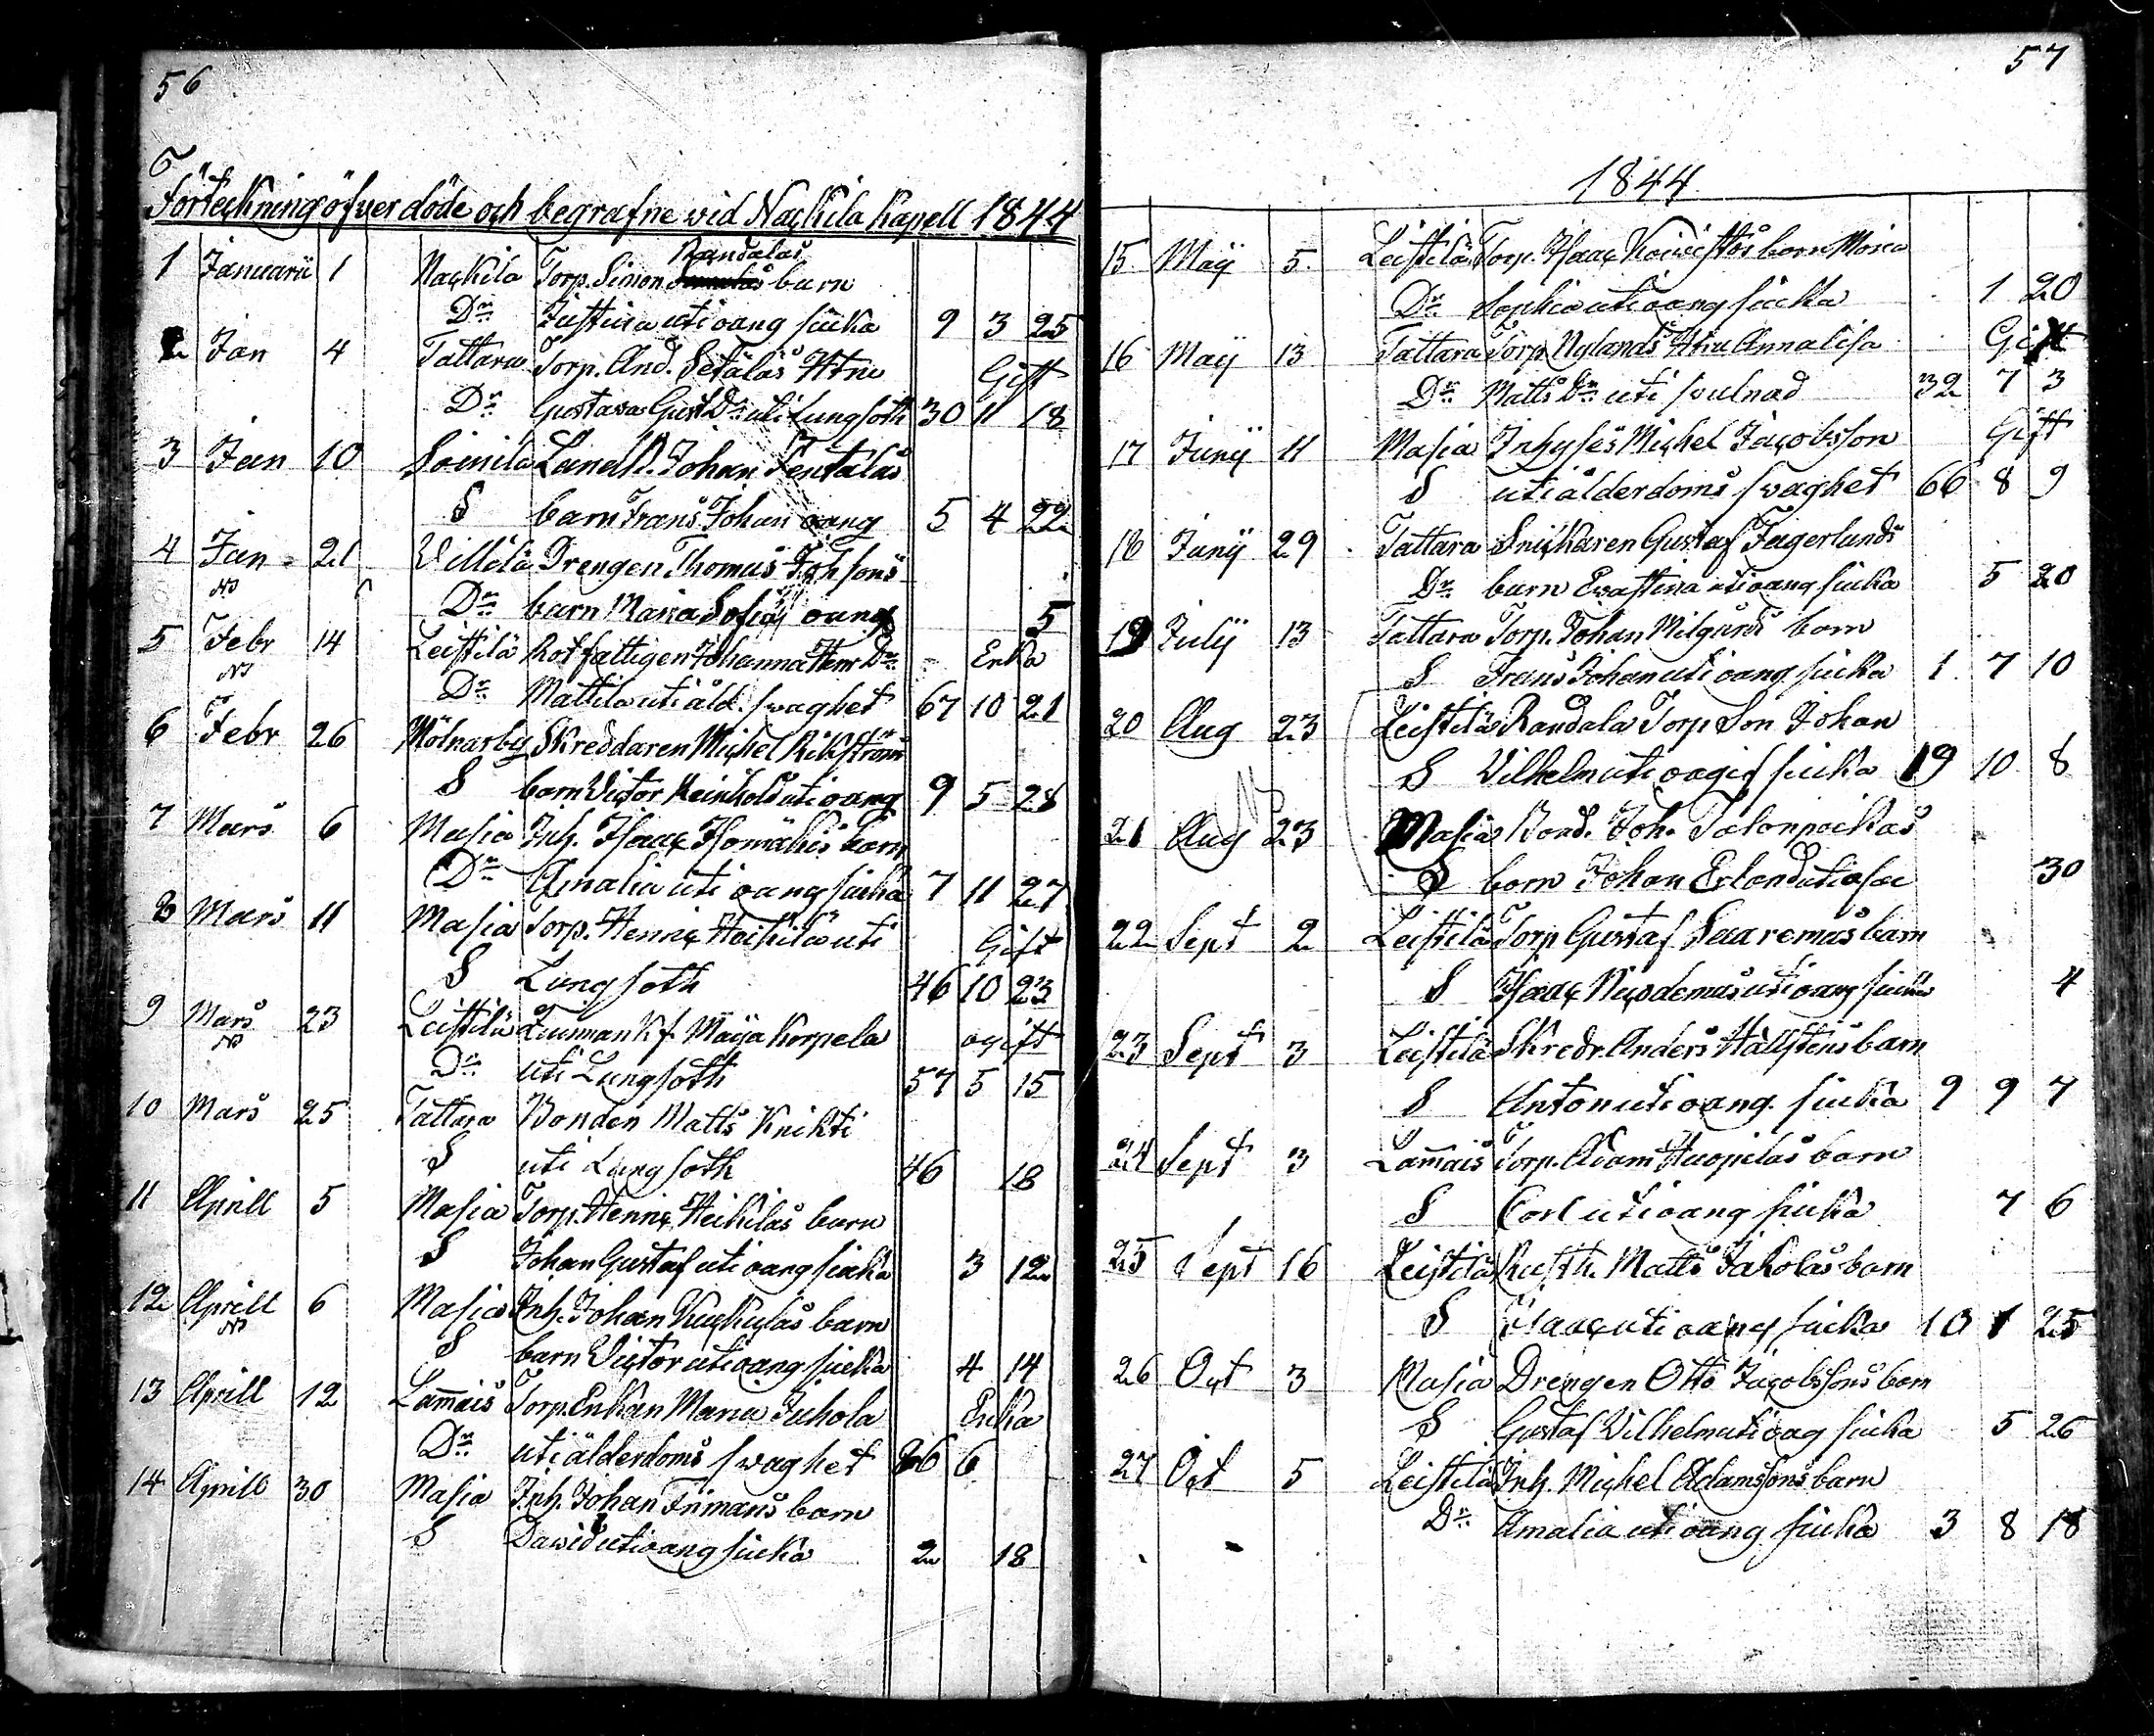 56
Förteckning öfver döde och begrafne wid Nackila Kapell 1844
Randalas
1 Januarii 1 Nackila Torp. Simon barn
Dr Justina uti oang siuka 9 3 25
2 Jan 4 Tattara Torp. And. Setäläs Hru Gift
Dr Gustava Gust Dr uti Lungsoth 30 11 18
3 Jan 10 Soinila Landb. Johan Pentäläs
S barn Frans Johan oang 5 4 22
4 Jan 21 Villilä Drengen Thomas Joh sons
NB Dr barn Maria Sofia oang 5
5 Febr 14 Leistilä Rotfattigen Johanna Henr Dr Enka
NB Dr Mattila uti åld. swaghet 67 10 21
6 Febr 26 Mölnarby Skreddaren Michel Rikströms
S barn Victor Reinhold uti oang 9 5 28
7 Mars 6 Masia Inh. Isaac Isomäkis barn
Dr Amalia uti oang siuka 7 11 27
8 Mars 11 Masia Torp. Henric Heikilä uti Gift
S Lungsoth 46 10 23
9 Mars 23 Leistilä Tuiman K f. Maija Korpela ogift
NB Dr uti Lungsoth 57 5 15
10 Mars 25 Tattara Bonden Matts Knikti
S uti Lungsoth 46 18
11 Aprill 5 Masia Torp. Henric Heikiläs barn
S Johan Gustaf uti oang siuka 3 12
12 Aprill 6 Masia Inh. Johan Kuckulas barn
NB S barn Victor uti oang siuka 4 14
13 Aprill 12 Lam̄ais Torp. Enkan Maria Juhola Enka
Dr uti ålderdoms swaghet 86 6
14 Aprill 30 Masia Inh. Johan Frimans barn
S Dawid uti oang siuka 2 18
57
1844
15 Maÿ 5 Leistilä Torp. Isaac Koivistos barn Maria
Dr Sophia uti oang siuka 1 20
16 Maÿ 13 Tattara Torp Nylands Hru Annalisa Gift
Dr Matts Dr uti svulnad 32 7 3
17 Junÿ 11 Masia Inhyses Michel Jacobsson Gift
S uti ålderdoms swaghet 66 8 9
18 Junÿ 29 Tattara Snickaren Gustaf Fagerlunds
Dr barn Evastina uti oang siuka 5 20
19 Julÿ 13 Tattara Torp. Johan Milgrens barn
S Frans Johan uti oang siuka 1 7 10
20 Aug 23 Leistilä Randala Torp Son Johan
S Vilhelm uti oagif siuka 19 10 8
21 Aug 23 Masia Bond. Joh. Talonpoikas
S barn Johan Erland uti 30
22 Sept 2 Leistilä Torp Gustaf Saaremas barn
S Isaac Nicodemus uti oang siuka 4
23 Sept 3 Leistilä Skredr. Anders Hällstens barn
S Anton uti oang siuka 9 9 7
24 Sept 3 Lam̄ais Torp. Adam Huopilas barn
S Carl uti oang siuka 7 6
25 Sept 16 Leistilä Rusth. Matts Jakolas barn
S Isaac uti oang siuka 10 1 25
26 Oct 3 Masia Drengen Otto Jacobssons barn
S Gustaf Vilhelm uti oag siuka 5 26
27 Oct 5 Leistilä Inh. Michel Adamssons barn
Dr Amalia uti oang siuka 3 8 18